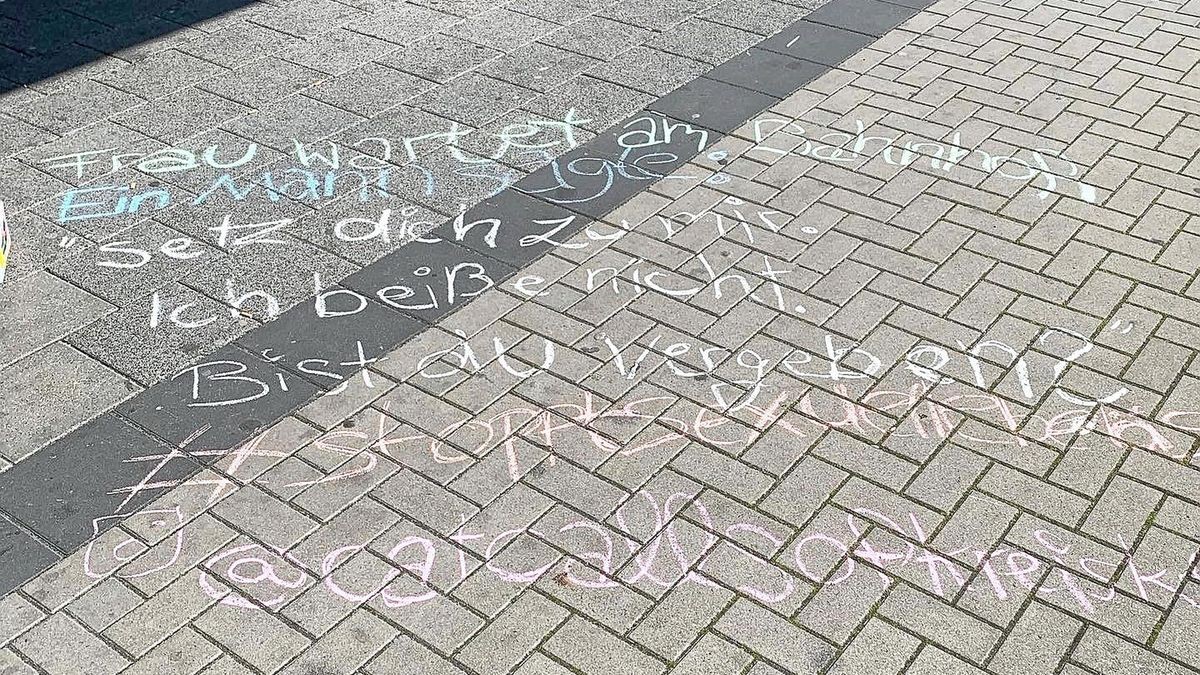 Frau wartet am Bahnhof.
Ein Mann sagte:
"Setz dich zu mir.
Ich beiße nicht.
Bist du vergeben?"
#stopptsexuellebeläs
@catcallsofkreisk